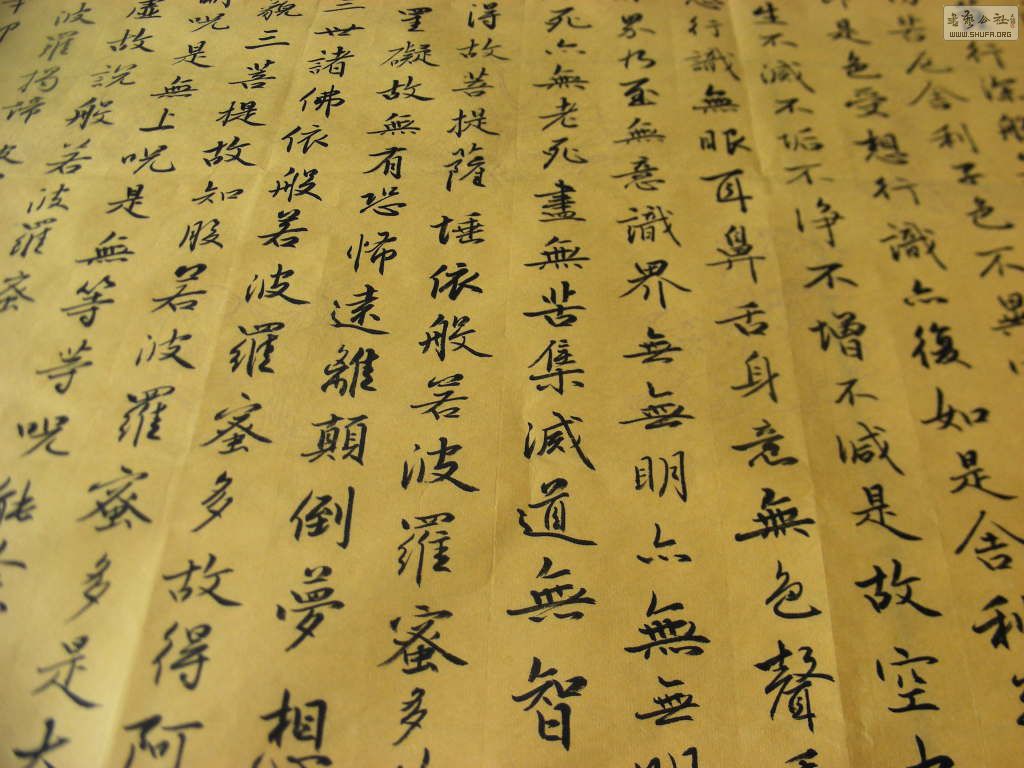 行深般
苦厄舍利子色不異
是色受想行識亦復如是舍利
生不滅不垢不淨不增不減是故空中
行識無眼耳鼻舌身意無色聲香
界乃至無意識界無無明亦無無明
死亦無老死盡無苦集滅道無智
得故菩提薩埵依般若波羅蜜多
罣礙故無有恐怖遠離顛倒夢想
三世諸佛依般若波羅蜜多故得阿
藐三菩提故知般若波羅蜜多是大
呪是無上呪是無等等呪能除
虛故說般若波羅蜜
波羅揭諦
書藝公社
WWW.SHUFA.ORG